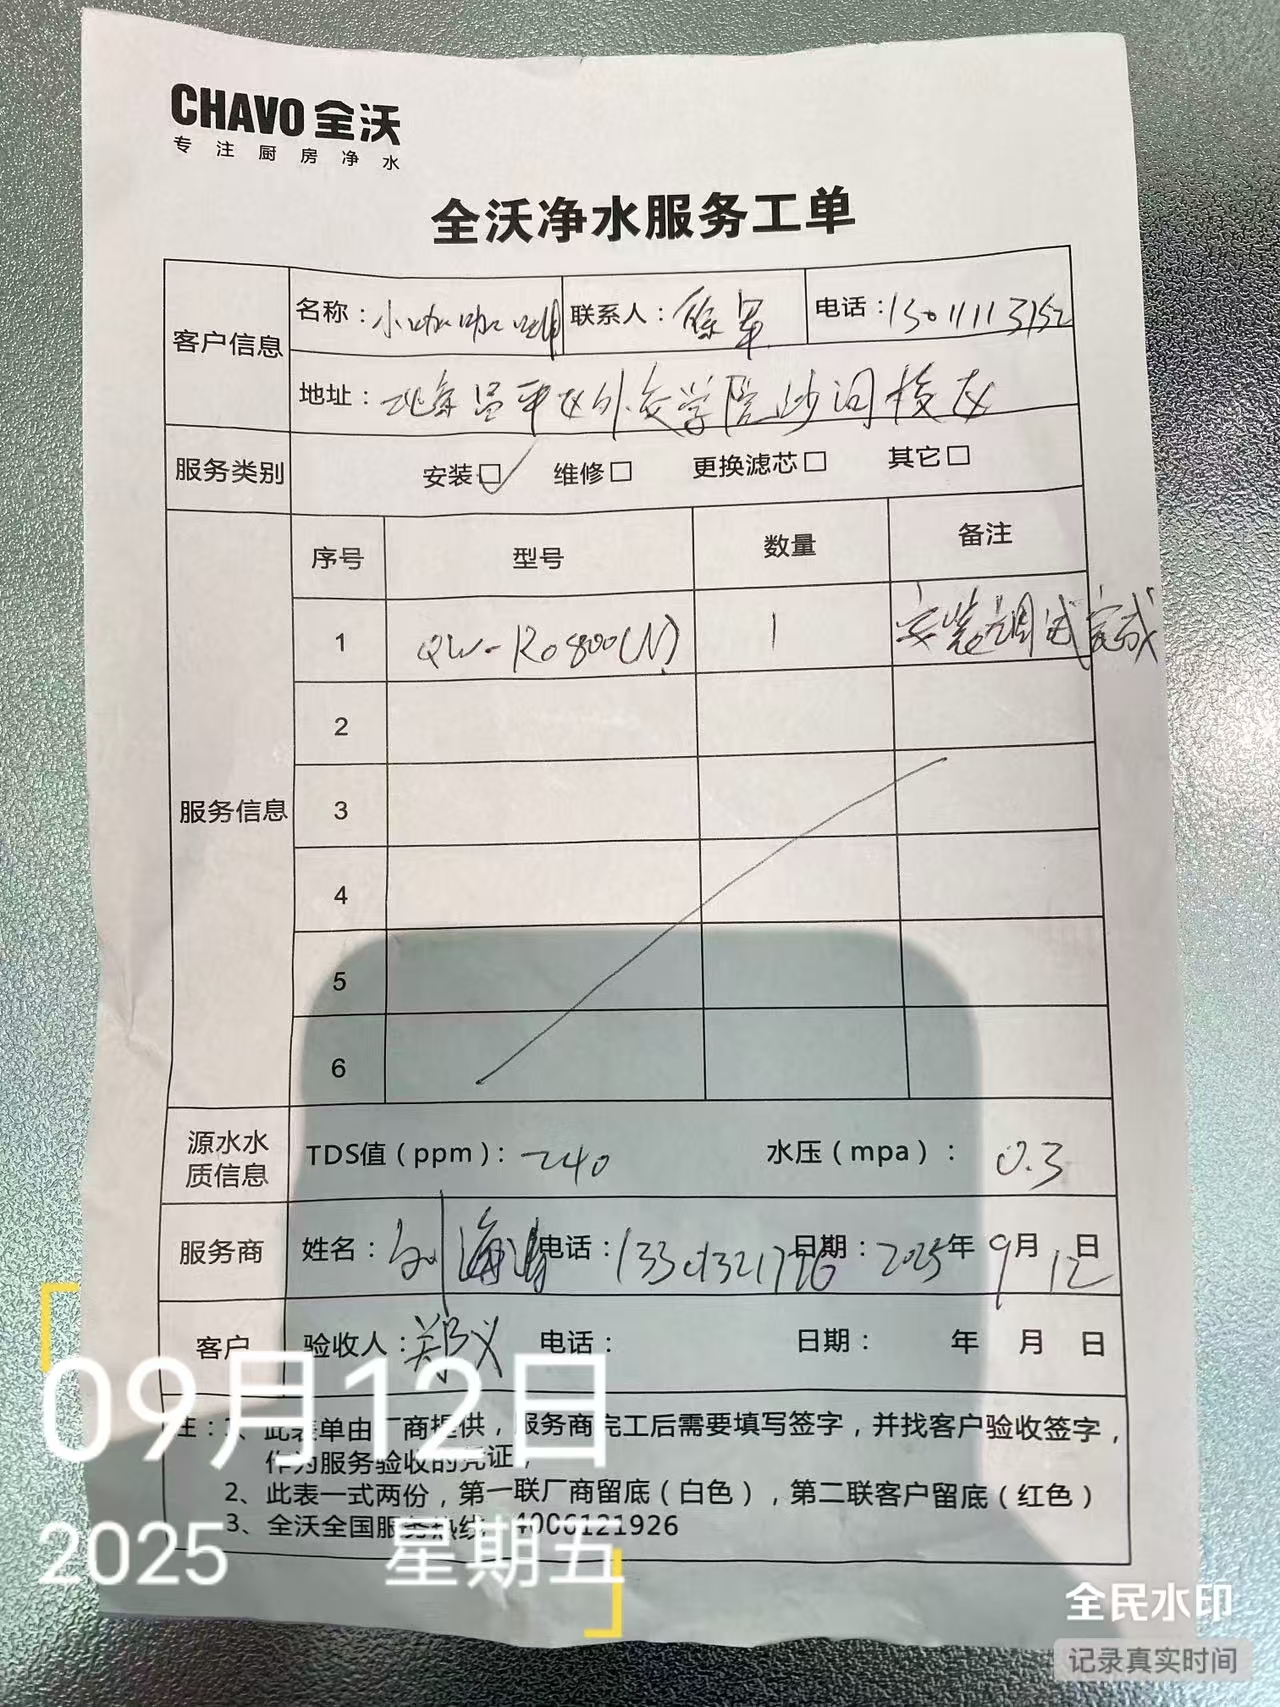 CHAVO 全沃
专注厨房净水
全沃净水服务工单
客户信息 名称：小咖咖啡 联系人：徐军 电话：15011113152
地址：北京昌平区外交学院沙河校区
服务类别 安装□✓ 维修□ 更换滤芯□ 其它□
服务信息 序号 型号 数量 备注
1 QW-RO800(N) 1 安装调试完成
2
3
4
5
6
源水水质信息 TDS值（ppm）：240 水压（mpa）：0.3
服务商 姓名：刘海涛 电话： 日期：2025年9月12日
客户 验收人：郑义 电话： 日期： 年 月 日
注：1、此表单由厂商提供，服务商完工后需要填写签字，并找客户验收签字，
作为服务验收的凭证，
2、此表一式两份，第一联厂商留底（白色），第二联客户留底（红色）
3、全沃全国服务热线：4006121926
09月12日
2025 星期五
全民水印
记录真实时间